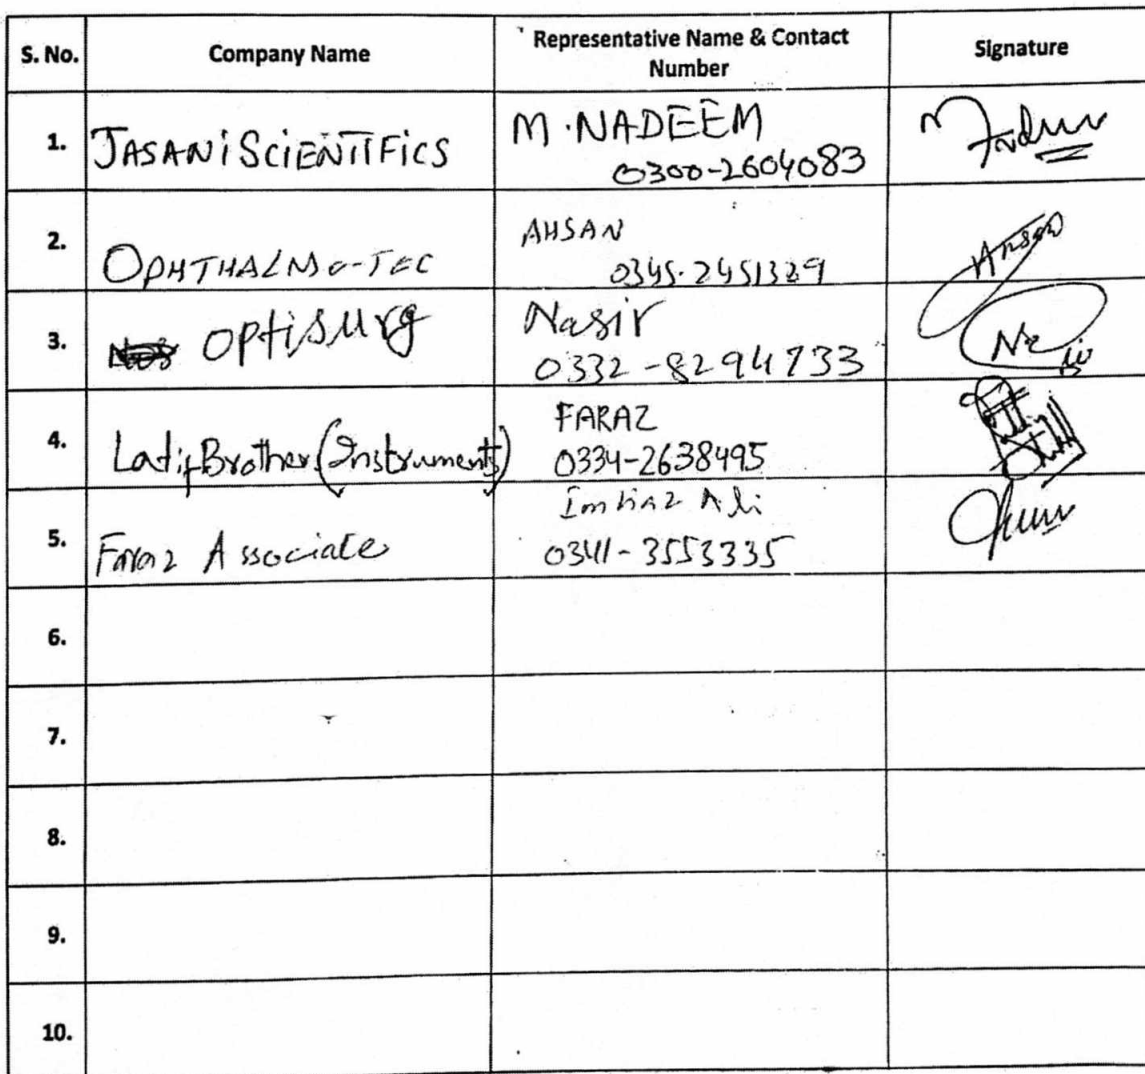 S. No. Company Name Representative Name & Contact Number Signature
1. JASANI SCIENTIFICS M. NADEEM
0300-2604083
2. OPHTHALMO-TEC AHSAN
0345-2451329 Ahsan
3. OPtiSurg Nasir
0332-8294733
4. Latif Brother (Instruments) FARAZ
0334-2638495
5. Faraz Associate Imtiaz Ali
0341-3553335
6.
7.
8.
9.
10.